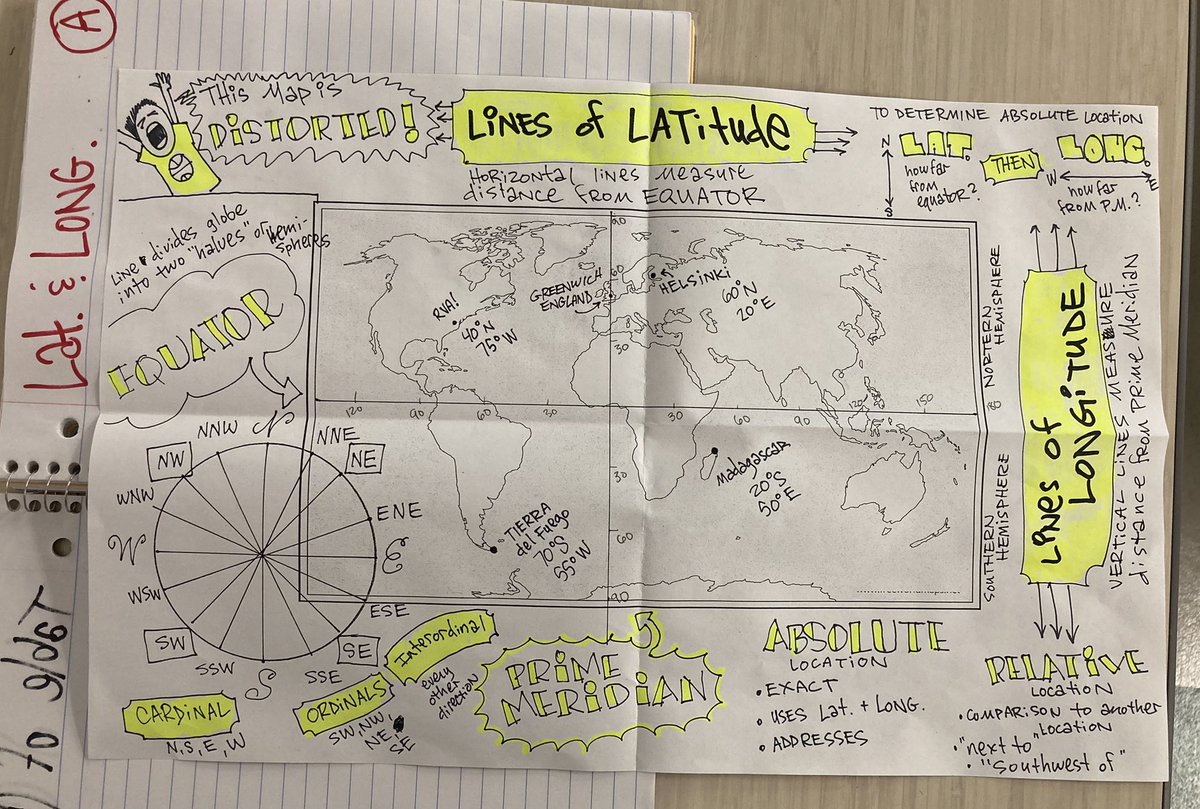 A
Lat. & LONG.
THIS MaP is
DiSTORTED!
LINES of LATitude
HORIZONTAL lines MEASURE
distance FROM EQUATOR
TO DETERMINE ABSOLUTE LOCATION
N
S
LAT.
how far
from
equator?
THEN
LONG.
W
E
how far
FROM P.M.?
Line divides globe
into two "halves" or hemi-
spheres
EQUATOR
90
60
30
30
60
90
120
90
60
30
30
60
90
120
150
RVA!
40°N
75°W
GREENWICH
ENGLAND
HELSINKI
60°N
20°E
Madagascar
20°S
50°E
TIERRA
del Fuego
70°S
55°W
NORTERN
HEMISPHERE
SOUTHERN
HEMISPHERE
LINES of
LONGiTUDE
VERTICAL LINES MEASURE
distance from Prime Meridian
N
NNW
NNE
NW
NE
WNW
ENE
W
E
WSW
ESE
SW
SE
SSW
SSE
S
CARDINAL
N, S, E, W
ORDINALS
SW, NW,
NE
SE
Interordinal
every
other
direction
PRIME
MERIDIAN
ABSOLUTE
LOCATION
• EXACT
• USES Lat. + LONG.
• ADDRESSES
RELATiVE
LOCATION
• COMPARISON TO another
Location
• "next to"
• "Southwest of"